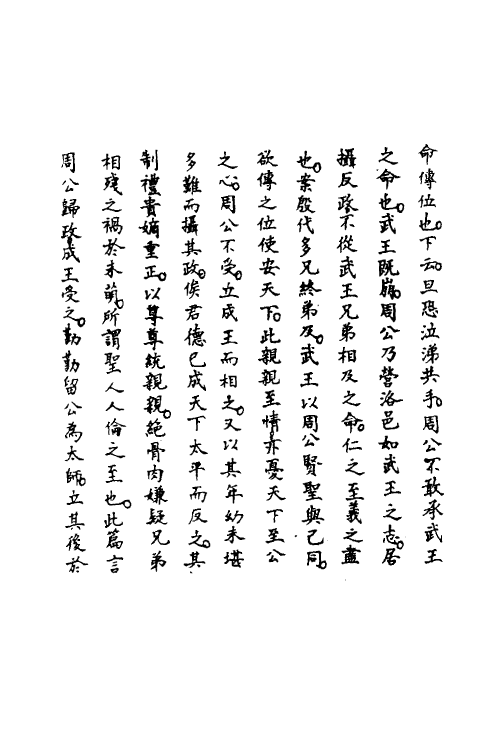 命傳位也。下云。旦恐泣涕共手。周公不敢承武王
之命也。武王既崩。周公乃營洛邑如武王之志。居
攝反政不從武王兄弟相及之命。仁之至義之盡
也。案殷代多兄終弟及。武王以周公賢聖與己同。
欲傳之位使安天下。此親親至情亦憂天下至公
之心。周公不受。立成王而相之。又以其年幼未堪
多難而攝其政。俟君德已成天下太平而反之。其
制禮貴嫡重正。以尊尊統親親。絶骨肉嫌疑兄弟
相殘之禍於未萌。所謂聖人人倫之至也。此篇言
周公歸政。成王受之。勤勤留公為太師。立其後於